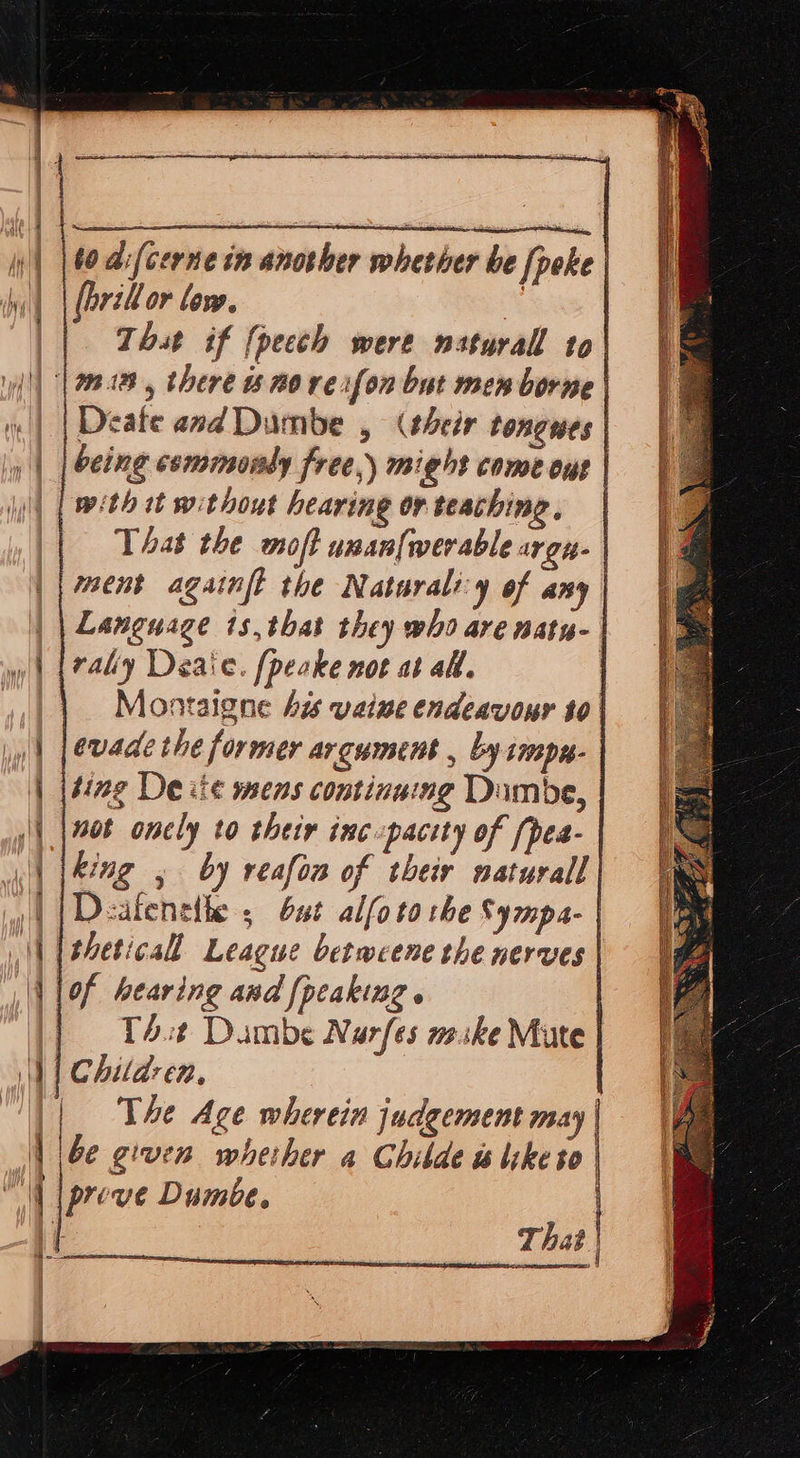 to diſcerne in another whether he ſpoke
ſhrill or low.
That if ſpeech were naturall to
man, there is no reaſon but men borne
Deafe and Dumbe, (their tongues
being commonly free,) might come out
with it without hearing or teaching.
That the moſt unanſwerable argu-
ment againſt the Naturality of any
Language is, that they who are natu-
rally Deafe, ſpeake not at all.
Montaigne his vaine endeavour to
evade the former argument, by impu-
ting Deafe mens continuing Dumbe,
not onely to their incapacity of ſpea-
king, by reaſon of their naturall
Deafeneſſe; but alſo to the Sympa-
theticall League betweene the nerves
of hearing and ſpeaking.
That Dumbe Nurſes make Mute
Children.
The Age wherein judgement may
be given whether a Childe is like to
prove Dumbe.
That